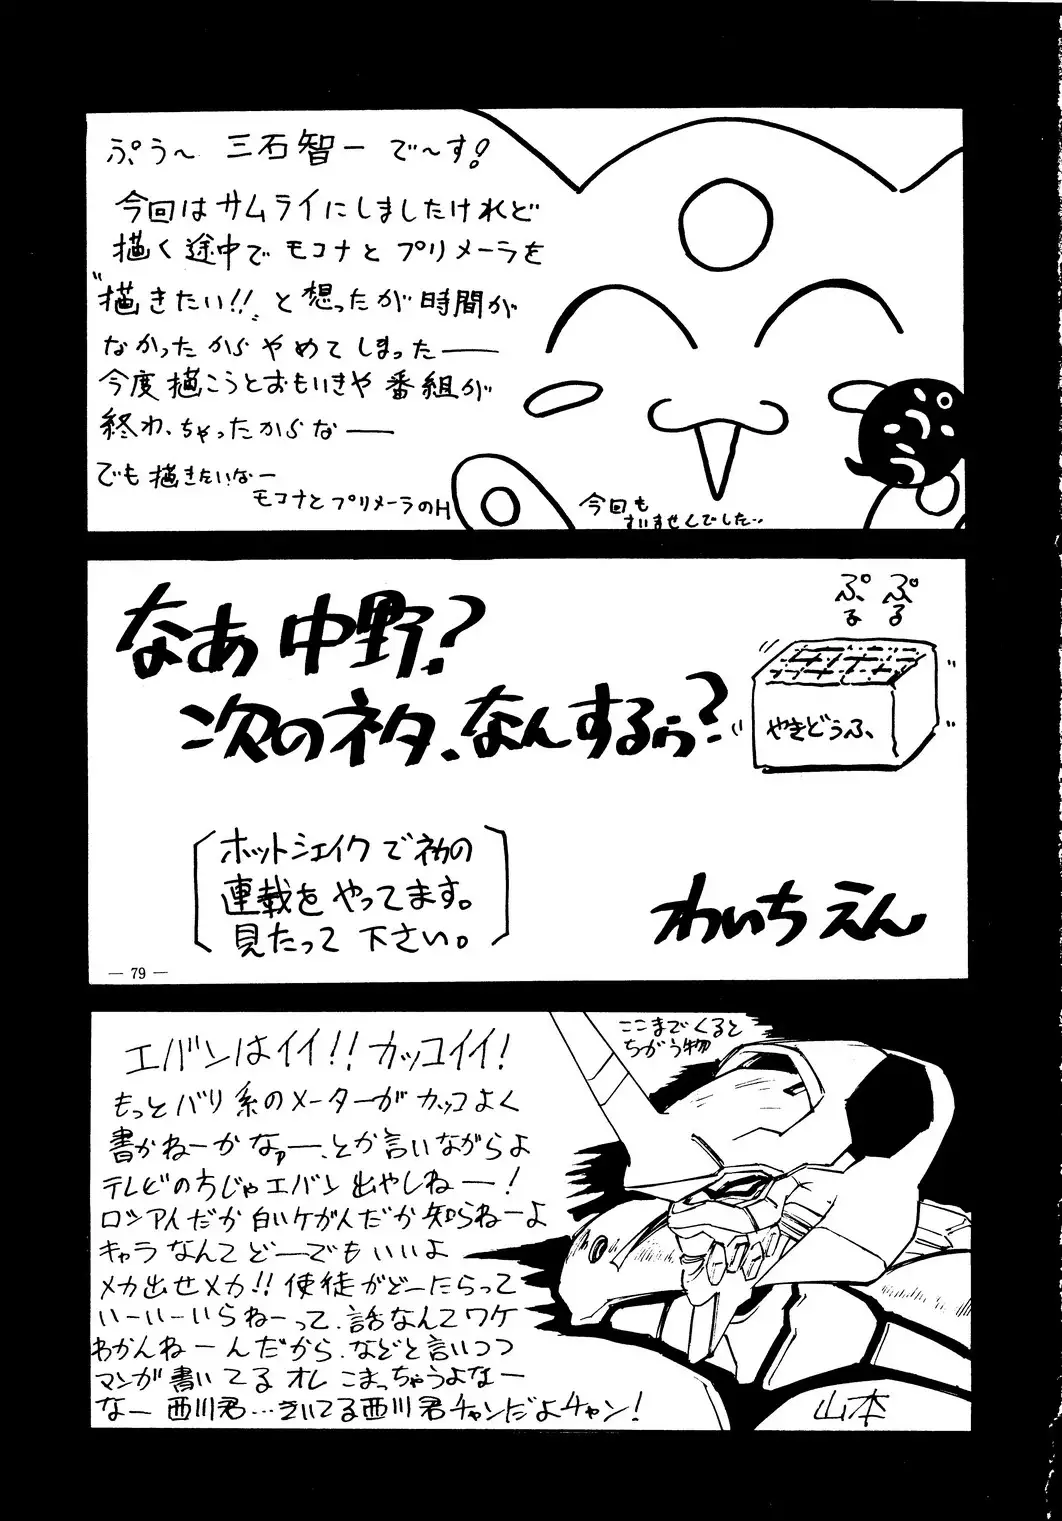 ぷぅ〜 三石智一 で〜す!
今回はサムライにしましたけれど
描く途中でモコナとプリメーラを
"描きたい!!"と想ったが時間が
なかったからやめてしまった――
今度描こうとおもいきや番組が
終わっちゃったからなー
でも描きたいなー
モコナとプリメーラのH
今回も
すいませんでした…
ぷぅ
なあ中野?
次のネタ、なんするぅ?
ぷる
ぷる
やきどうふ
ホットシェイクで初の
連載をやってます。
見たって下さい。
わいちえん
― 79 ―
エバンはイイ!! カッコイイ!
もっとバリ系のメーターがカッコよく
書かねーかなァー、とか言いながらよ
テレビのちじゃエバン出やしねー!
ロシア人だか白いケがんだか知らねーよ
キャラなんてどーでもいいよ
メカ出せメカ!! 使徒がどーたらって
いーいーいらねーって、話なんてワケ
わかんねーんだから、などと言いつつ
マンが書いてるオレこまっちゃうよなー
なー西川君…きいてる西川君チャンだよチャン!
ここまでくると
ちがう物
山本